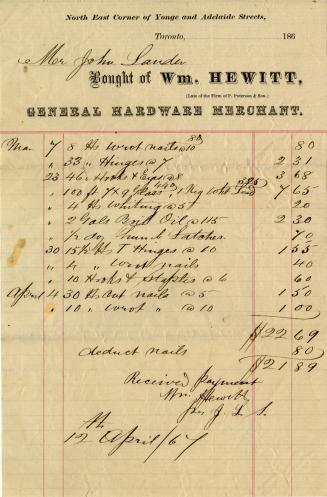 North East Corner of Yonge and Adelaide Streets,
Toronto, 186
Mr John Lauder
Bought of Wm. HEWITT,
(Late of the Firm of P. Paterson & Son.)
GENERAL HARDWARE MERCHANT.
Mar 7 8 lbs wrot nails @ 10 80
" 33 " Hinges @ 7 2 31
23 46 " Hooks & Eyes @ 8 3 68
" 100 ft 7x9 Glass 440 1 Keg Wht Lead 7 65
" 4 lbs Whiting @ 5 20
" 2 Gals Boil Oil @ 115 2 30
" 1/2 doz Thumb Latches 70
30 15 1/2 lbs T Hinges @ 10 1 55
" 4 " wrot nails 40
" 10 Hooks & Staples @ 6 60
April 4 30 lbs cut nails @ 5 1 50
" 10 " wrot " @ 10 1 00
$22 69
deduct nails 80
$21 89
Received payment
Wm Hewitt
per J. L. S.
12 April/67